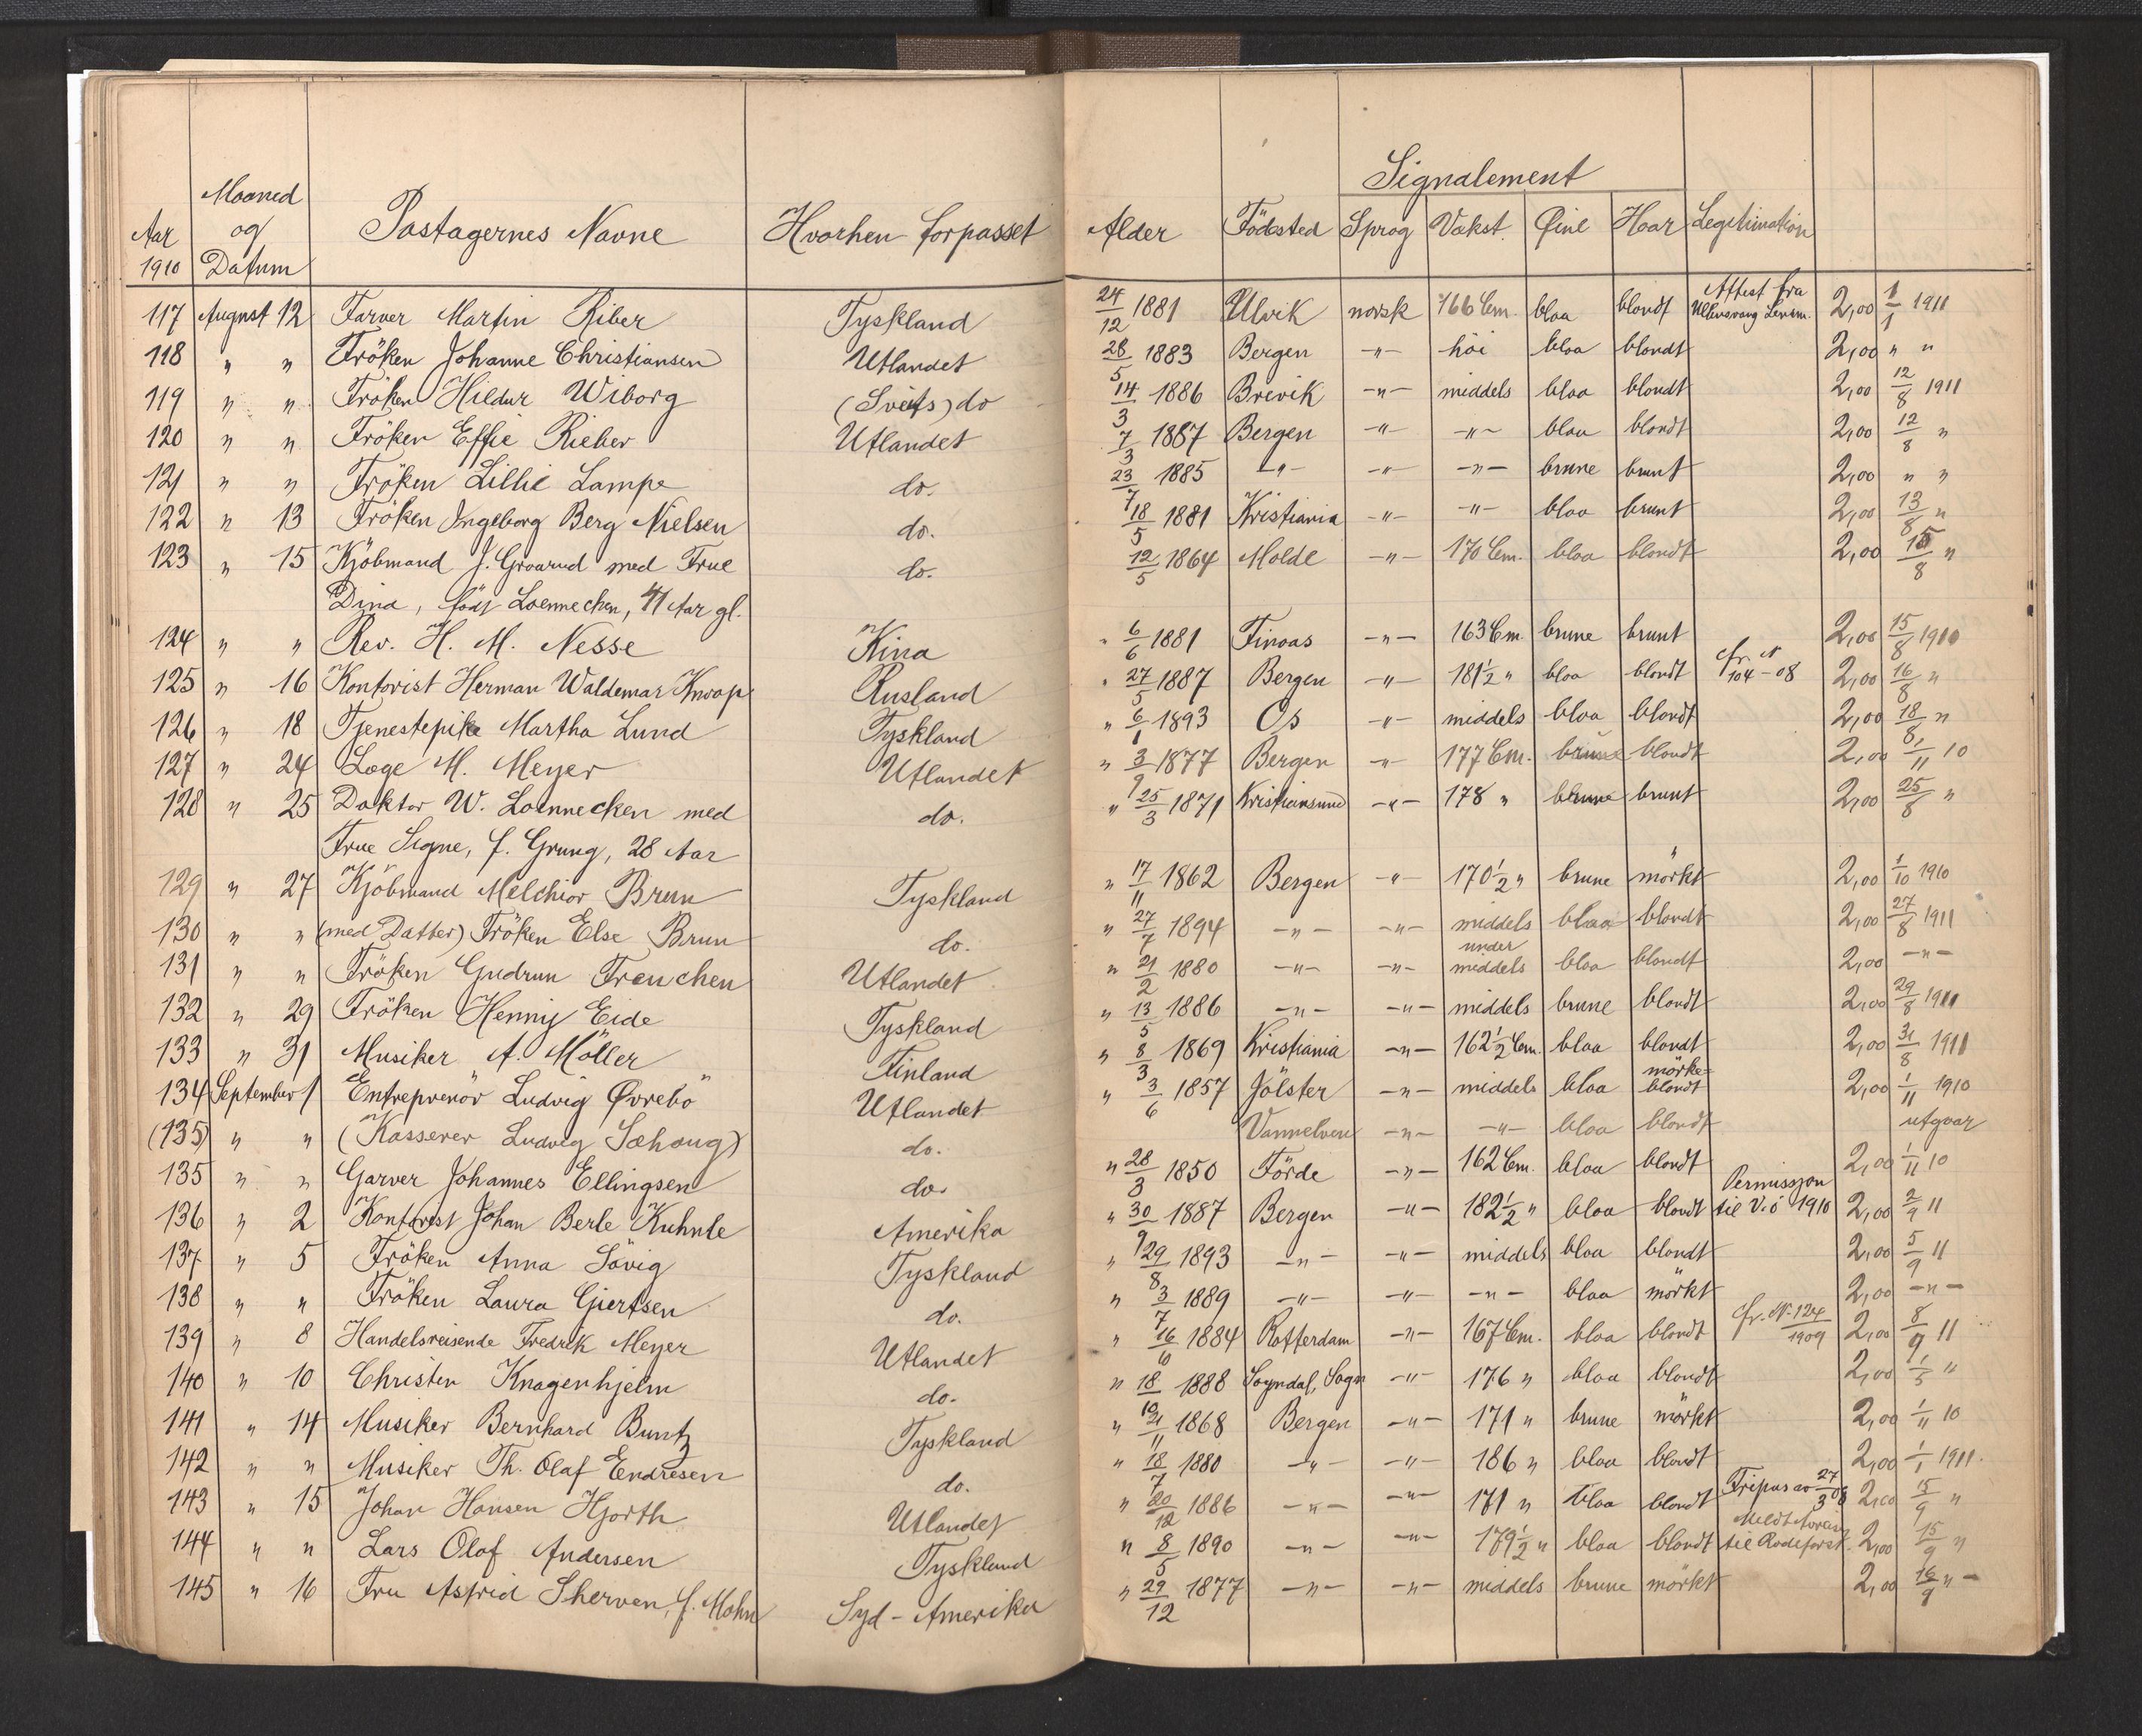 Signalement
Aar 1910 Maaned og Datum Pastagernes Navne Hvorhen forpasset Alder Födested Sprog Vækst. Øine Haar Legitimation
117 August 12 Farver Martin Riber Tyskland 24/12 1881 Ulvik norsk 166 Cm. blaa blondt Attest fra Ullensvang Lensm. 2,00 1/1 1911
118 " " Fröken Johanne Christiansen Utlandet 28/5 1883 Bergen -"- höi blaa blondt 2,00 " "
119 " " Fröken Hildur Wiborg (Sveits) do 14/3 1886 Brevik -"- middels blaa blondt 2,00 12/8 1911
120 " " Fröken Effie Rieber Utlandet 7/3 1887 Bergen -"- -"- blaa blondt 2,00 12/8 "
121 " " Fröken Lillie Lampe do. 23/7 1885 -"- -"- -"- brune brunt 2,00 " "
122 " 13 Fröken Ingeborg Berg Nielsen do. 18/5 1881 Kristiania -"- -"- blaa brunt 2,00 13/8 "
123 " 15 Kjöbmand J. Graarud med Frue do. 12/5 1864 Molde -"- 170 Cm. blaa blondt 2,00 15/8 "
Dina, född Loennecken, 41 Aar gl.
124 " " Rev. H. M. Nesse Kina " 6/6 1881 Finaas -"- 163 Cm. brune brunt 2,00 15/8 1910
125 " 16 Kontorist Herman Waldemar Knoop Rusland " 27/5 1887 Bergen -"- 181½ " blaa blondt cfr. N 104-08 2,00 16/8 "
126 " 18 Tjenestepike Martha Lund Tyskland " 6/1 1893 Os -"- middels blaa blondt 2,00 18/8 "
127 " 24 Læge M. Meyer Utlandet " 3/9 1877 Bergen -"- 177 Cm. brune blondt 2,00 1/11 10
128 " 25 Doktor W. Loennecken med do. " 25/3 1871 Kristiansund -"- 178 " brune brunt 2,00 25/8 "
Frue Signe, f. Grung, 28 Aar
129 " 27 Kjöbmand Melchior Brun Tyskland " 17/11 1862 Bergen -"- 170½ " brune mörkt 2,00 1/10 1910
130 " " (med Datter) Fröken Else Brun do. " 27/7 1894 -"- -"- middels blaa blondt 2,00 27/8 1911
131 " " Fröken Gudrun Freuchen Utlandet " 21/2 1880 -"- -"- under middels blaa blondt 2,00 -"-
132 " 29 Fröken Henny Eide Tyskland " 13/5 1886 -"- -"- middels brune blondt 2,00 29/8 1911
133 " 31 Musiker A. Möller Finland " 8/3 1869 Kristiania -"- 162½ Cm. blaa blondt 2,00 31/8 1911
134 September 1 Entreprenör Ludvig Øvrebö Utlandet " 3/6 1857 Jölster -"- middels blaa mörke-blondt 2,00 1/11 1910
(135) " " (Kasserer Ludvig Sæhaug) do. Vannelven -"- -"- blaa blondt utgaar
135 " " Garver Johannes Ellingsen do. " 28/3 1850 Förde -"- 162 Cm. blaa blondt 2,00 1/11 10
136 " 2 Kontorist Johan Berle Kuhnle Amerika " 30/9 1887 Bergen -"- 182½ " blaa blondt Permission til V.ö 1910 2,00 2/9 11
137 " 5 Fröken Anna Sövig Tyskland " 29/8 1893 -"- -"- middels blaa blondt 2,00 5/9 11
138 " " Fröken Laura Giertsen do. " 3/7 1889 -"- -"- -"- blaa mörkt 2,00 -"-
139 " 8 Handelsreisende Fredrik Meyer Utlandet " 16/10 1884 Rotterdam -"- 167 Cm. blaa blondt cfr. N. 124/1909 2,00 8/9 11
140 " 10 Christen Knagenhjelm do. " 18/12 1888 Sogndal, Sogn -"- 176 " blaa blondt 2,00 1/5 "
141 " 14 Musiker Bernhard Buntz Tyskland " 21/11 1868 Bergen -"- 171 " brune mörkt 2,00 1/11 10
142 " " Musiker Th. Olaf Endresen do. " 18/7 1880 -"- -"- 186 " blaa blondt 2,00 1/1 1911.
143 " 15 Johan Hansen Hjorth Utlandet " 20/12 1886 -"- -"- 171 " blaa blondt Fripas av 27/3 08 2,00 15/9 "
144 " " Lars Olaf Andersen Tyskland " 8/5 1890 -"- -"- 179½ " blaa blondt til Rodeforst. 2,00 15/9 "
145 " 16 Fru Astrid Sherven, f. Mohn Syd-Amerika " 29/12 1877 -"- -"- middels brune mörkt 2,00 16/9 "-